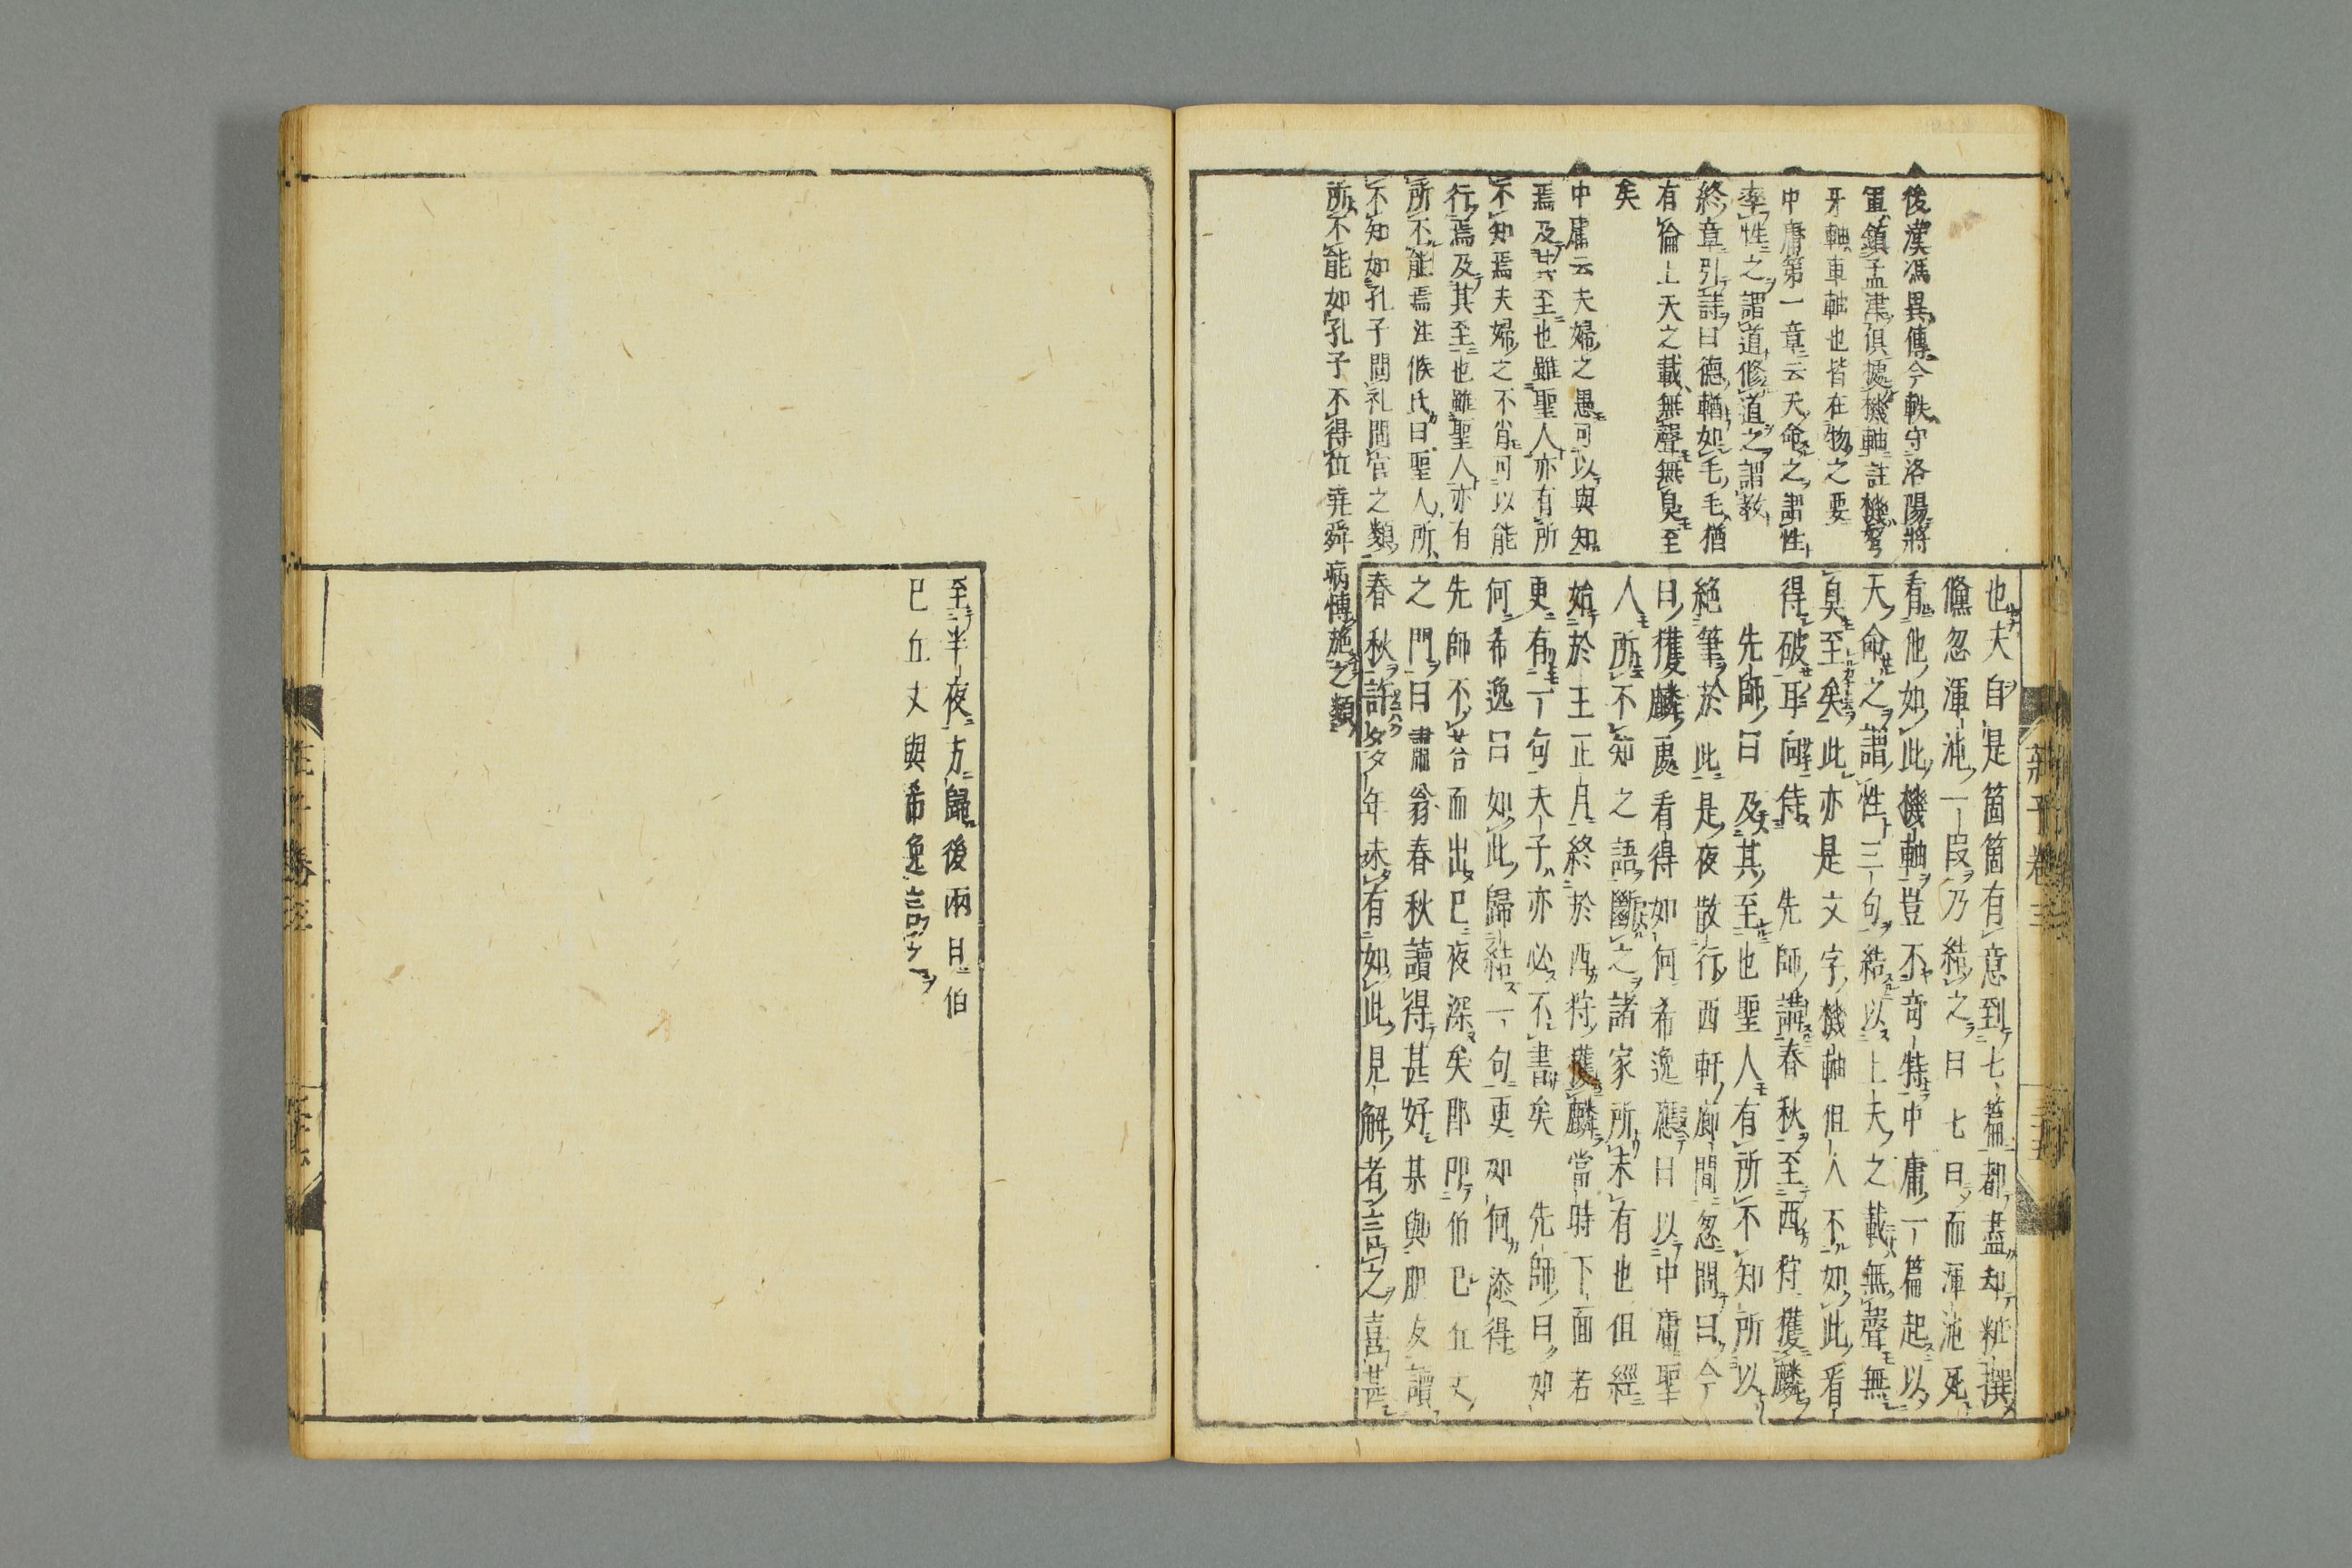 後漢馮異傳今軼守洛陽將
軍鎮孟津俱據機軸註機弩
牙軸車軸也皆在物之要
中庸第一章云天命之謂性
率性之謂道修道之謂教
終章引詩曰德輶如毛毛猶
有倫上天之載無聲無臭至
矣
中庸云夫婦之愚可以與知
焉及其至也雖聖人亦有所
不知焉夫婦之不肖可以能
行焉及其至也雖聖人亦有
所不能焉注侯氏曰聖人所
不知如孔子問礼問官之類
所不能如孔子不得位堯舜病博施之類
也夫自是箇箇有意到七篇都盡却粧撰
儵忽渾沌一段乃結之曰七日而渾沌死
看他如此機軸豈不奇特中庸一篇起以
天命之謂性三句結以上天之載無聲無
臭至矣此亦是文字機軸但人不如此看
得破耳
先師講春秋至西狩獲麟
先師曰及其至也聖人有所不知所以
絕筆於此是夜散行西軒廊間忽問曰今
日獲麟處看得如何希逸應曰以中庸聖
人所不知之語斷之諸家所未有也但經
始於王正月終於西狩獲麟當時下面若
更有一句夫子亦必不書矣先師曰如
何希逸曰如此歸結一句更如何添得
先師不荅而出已夜深矣即叩伯已丘丈
之門曰肅翁春秋讀得甚好某與朋友讀
春秋許多年未有如此見解者言之喜甚
至半夜方歸後兩日伯
已丘丈與希逸言之
莊子卷三
三十五